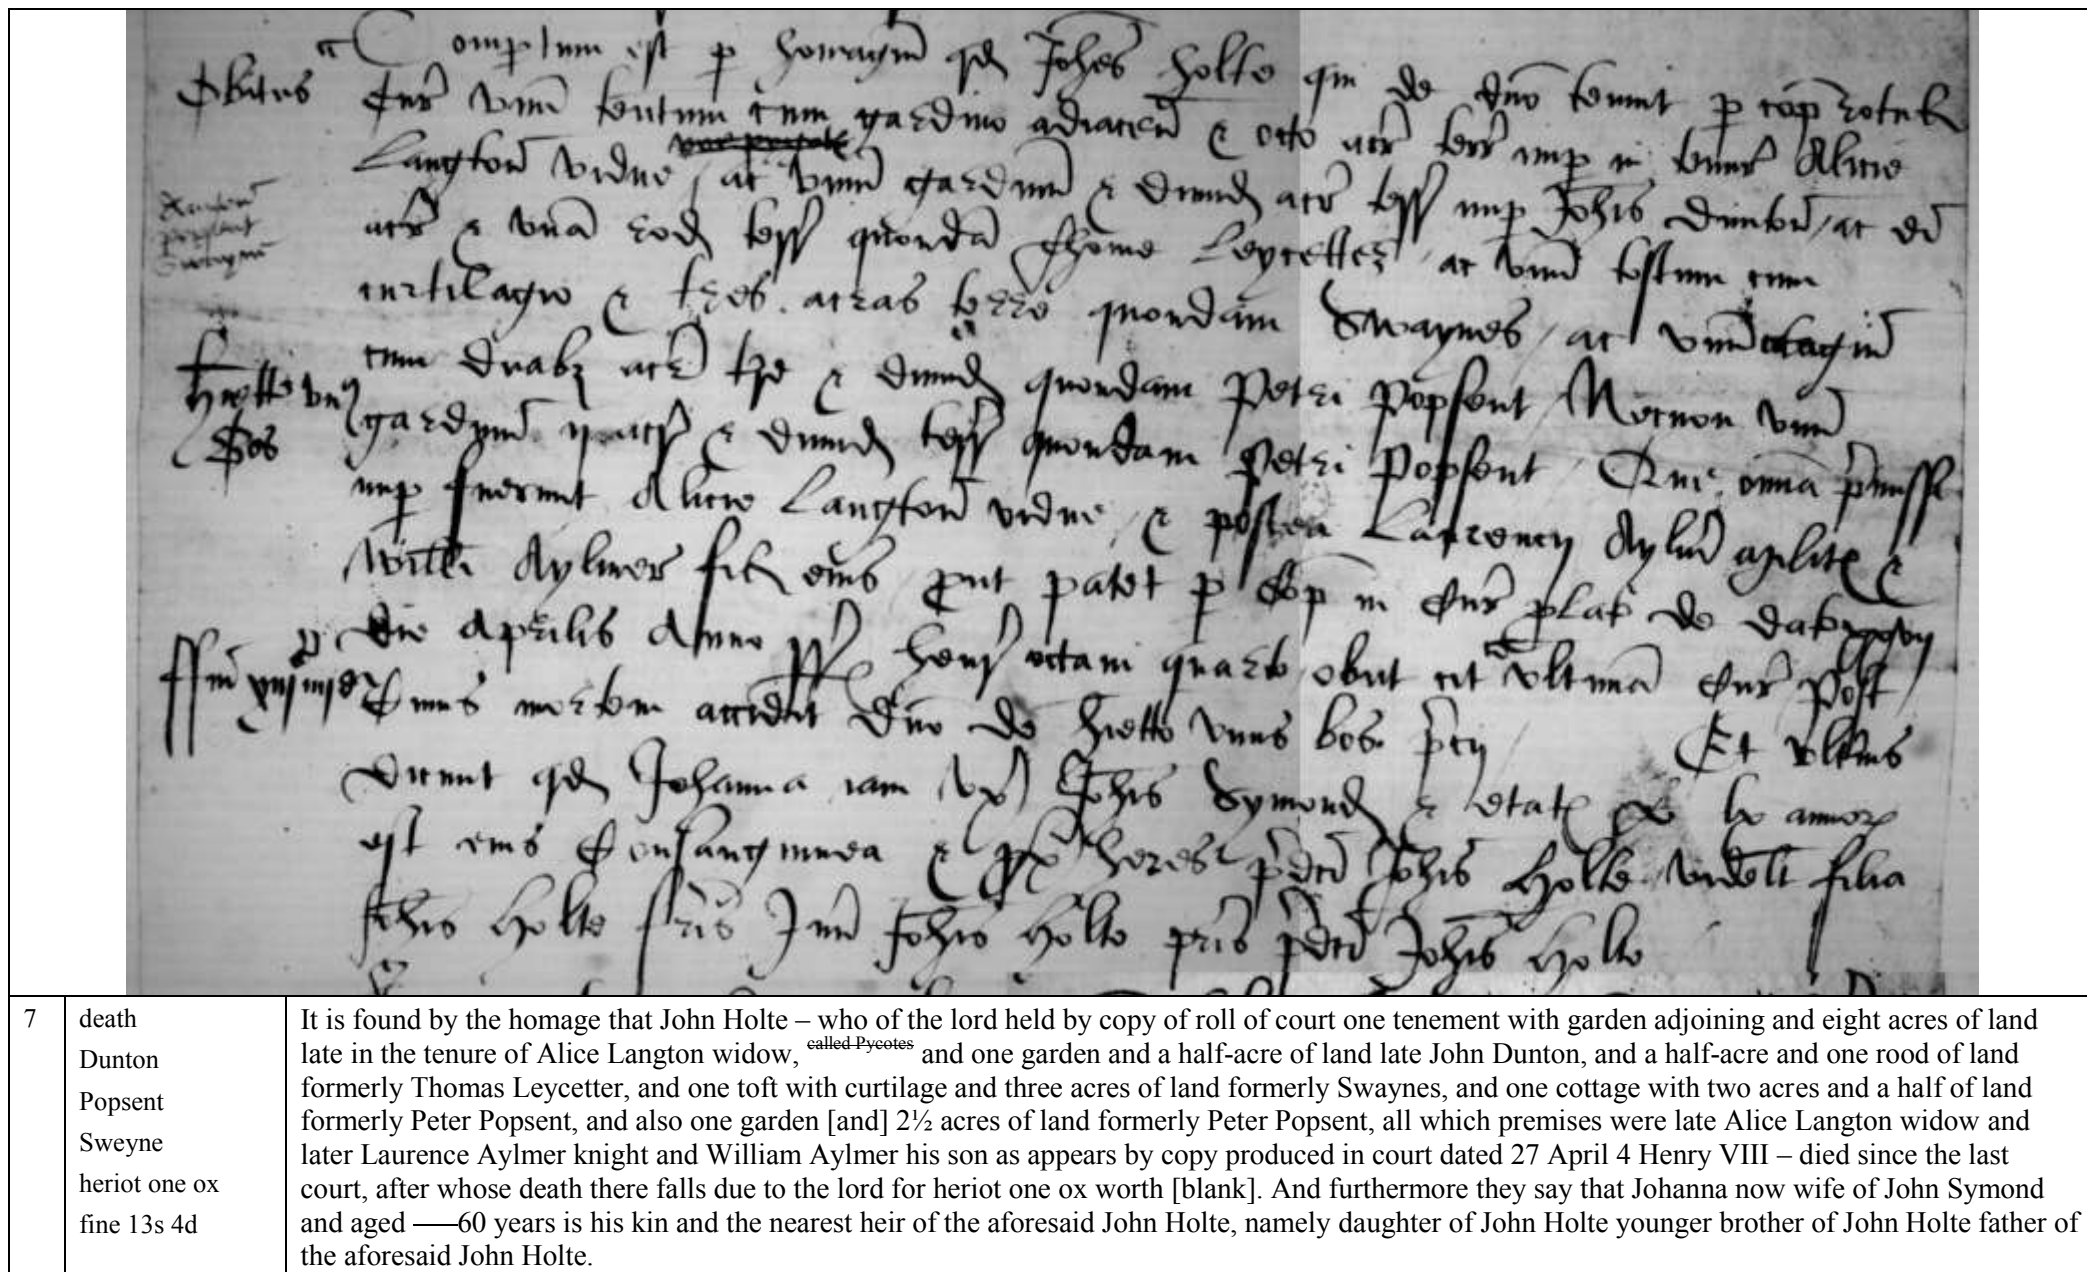 Compertum est p homagiu qd Johes Holte qui de dno tenuit p cop rotul
Obitus
Cur unu tentum cum gardino adiacen & octo acr terr nup in tenur Alicie
Langton vidue / ac unu gardinu & dimid acr terr nup Johis Dunton / ac di
Dunton
Popsent
Swayn
acr & una rod terr quonda Thome Leycetter / ac unu toftum cum
curtilagio & tres acras terre quondam Swaynes / ac unu cotagiu
cum duabz acr tre & dimid quondam Petri Popsent / Necnon unu
Hietto un
Bos
gardynu ij acr & dimid terr quondam Petri Popsent / Que omia premiss
nup fuerunt Alicie Langton vidue / & postea Laurencij Aylmer militis &
Willi Aylmer fil eius / put patet p Cop in Cur plat de dat xxvij
die Aprilis Anno rr Henr octavi quarto obiit cit ultima Cur post
ffin xiijs iiijd
Cuius mortem accidit dno de hietto unus bos precij / Et ulterius
dicunt qd Johanna iam ux Johis Symond & etatis lx annorum
est eius Consanguinea & px heres pdcti Johis Holte videlt filia
Johis Holte fris Jun Johis Holte pris pdcti Johis Holte
7
death
Dunton
Popsent
Sweyne
heriot one ox
fine 13s 4d
It is found by the homage that John Holte – who of the lord held by copy of roll of court one tenement with garden adjoining and eight acres of land
late in the tenure of Alice Langton widow, called Pycotes and one garden and a half-acre of land late John Dunton, and a half-acre and one rood of land
formerly Thomas Leycetter, and one toft with curtilage and three acres of land formerly Swaynes, and one cottage with two acres and a half of land
formerly Peter Popsent, and also one garden [and] 2½ acres of land formerly Peter Popsent, all which premises were late Alice Langton widow and
later Laurence Aylmer knight and William Aylmer his son as appears by copy produced in court dated 27 April 4 Henry VIII – died since the last
court, after whose death there falls due to the lord for heriot one ox worth [blank]. And furthermore they say that Johanna now wife of John Symond
and aged ——60 years is his kin and the nearest heir of the aforesaid John Holte, namely daughter of John Holte younger brother of John Holte father of
the aforesaid John Holte.